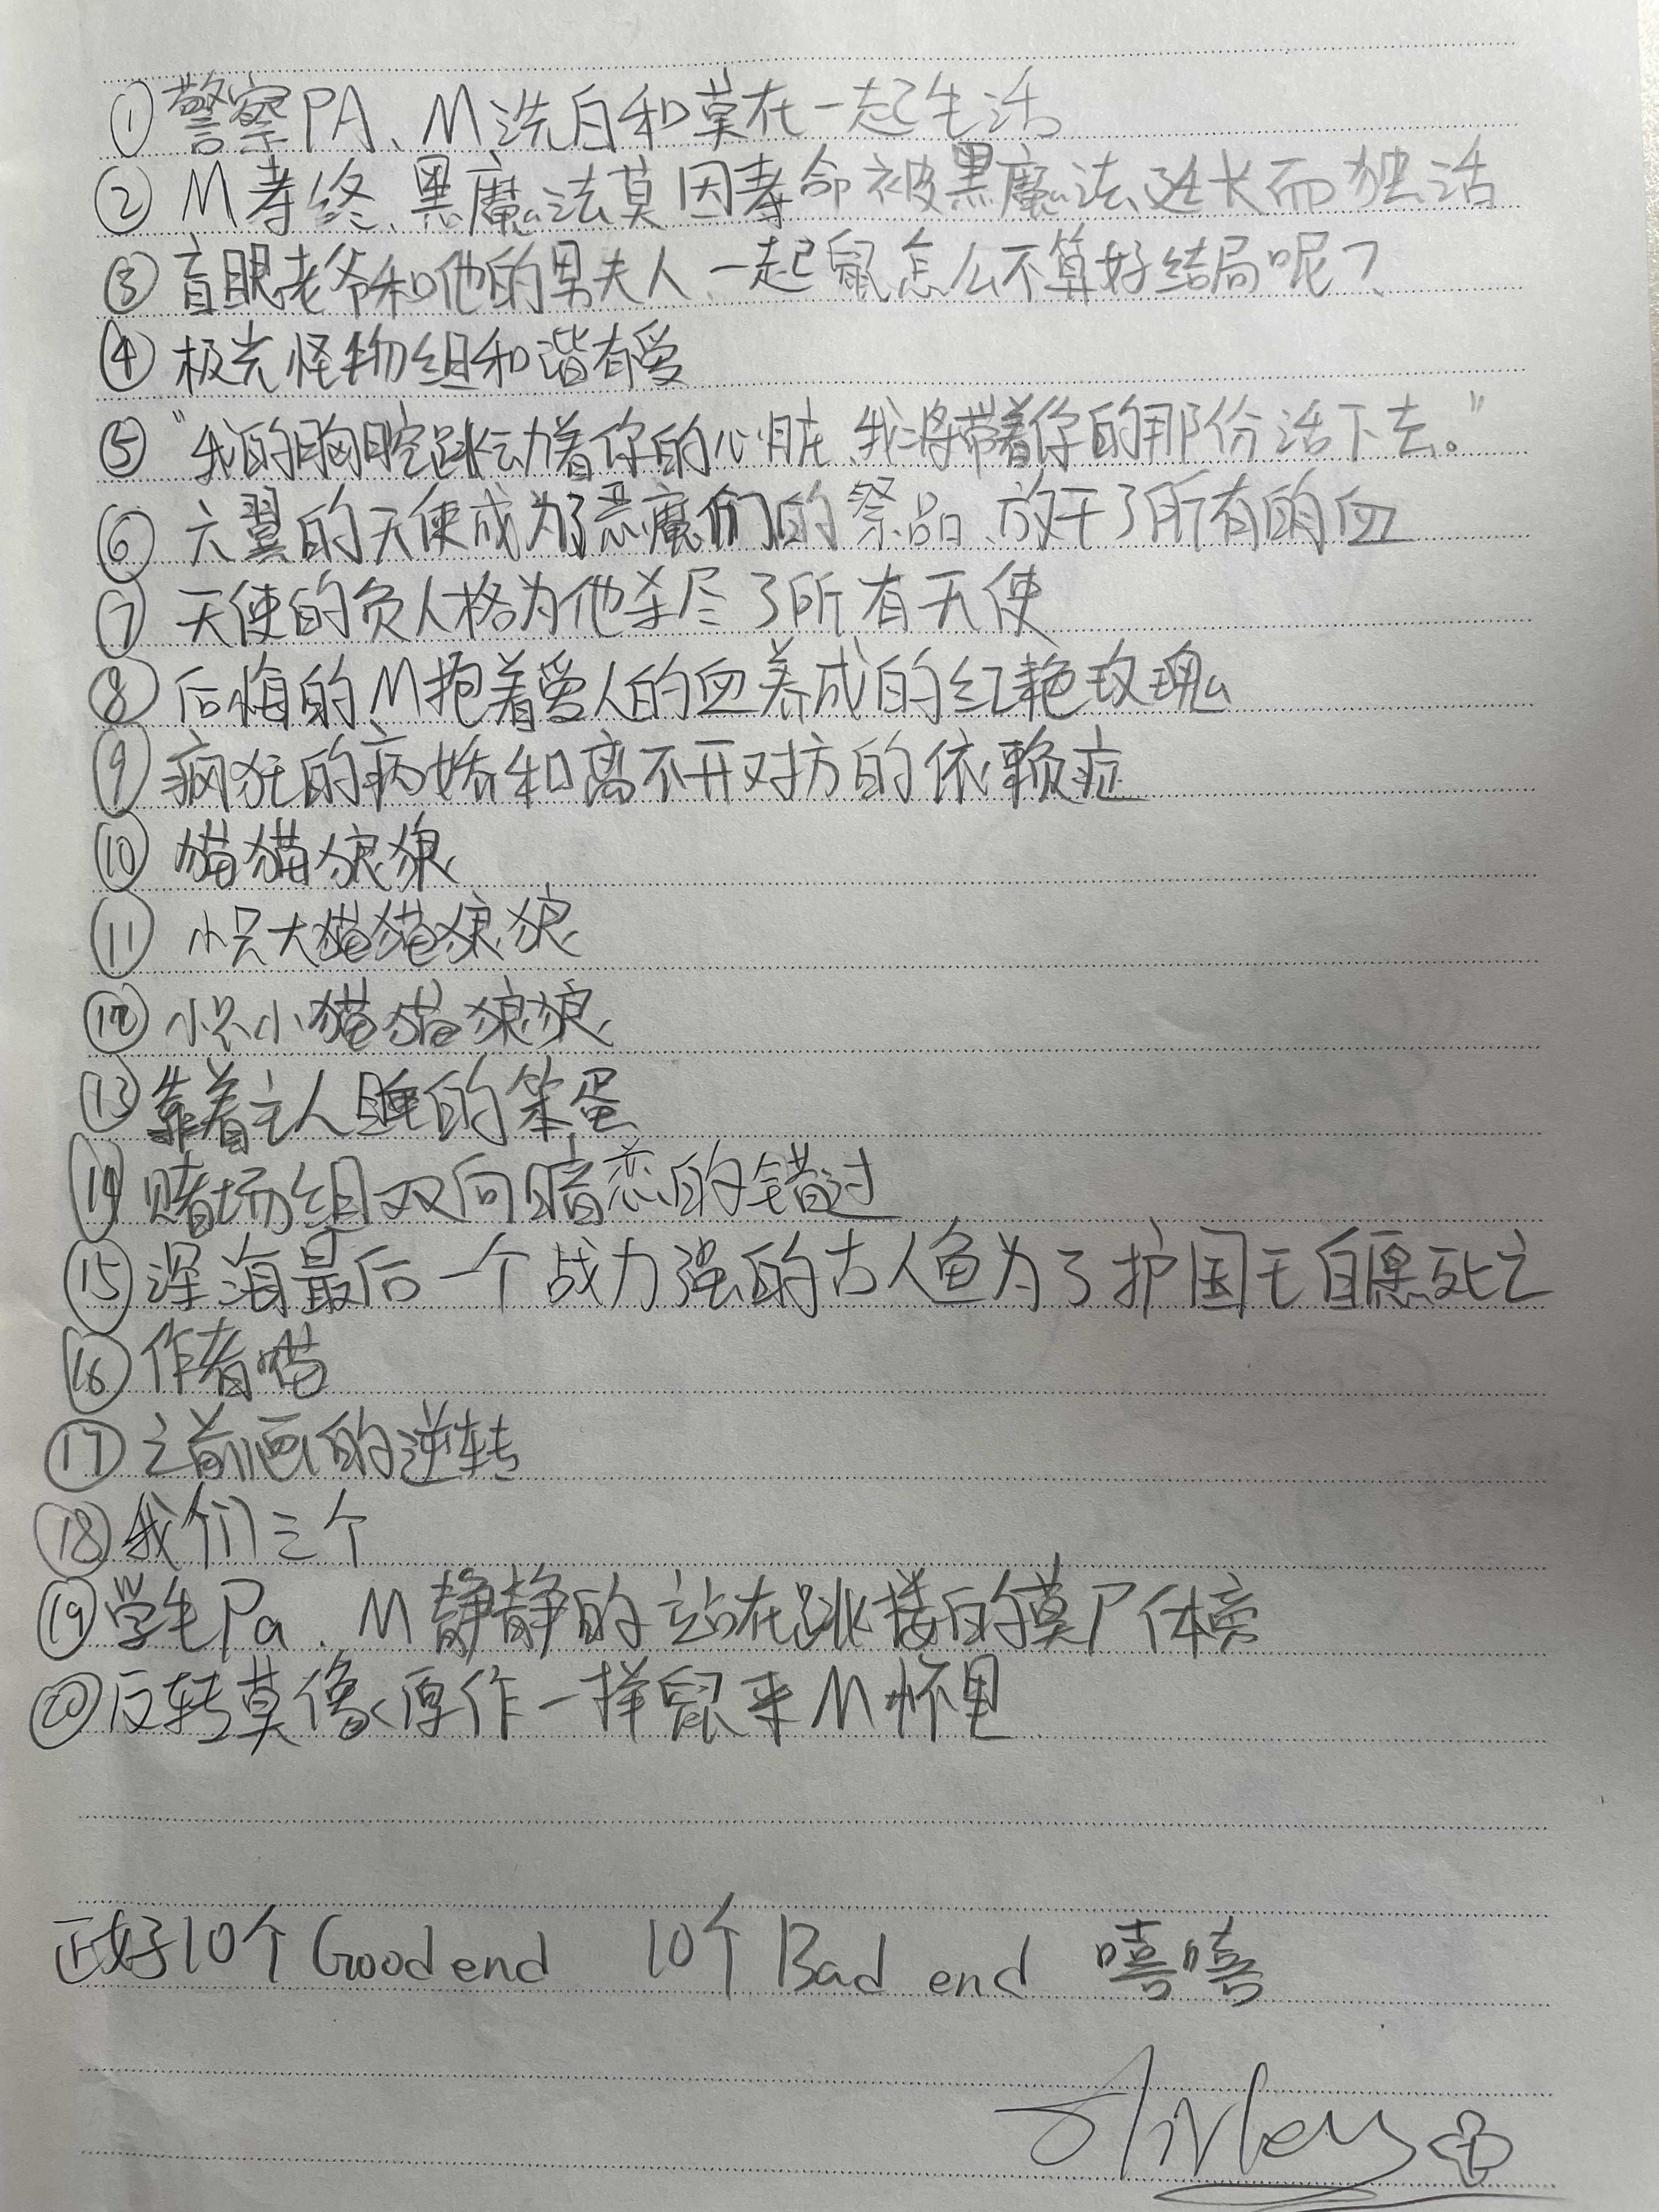 ①警察PA、M洗白和莫在一起生活
②M寿终、黑魔法莫因寿命被黑魔法延长而独活
③盲眼老爷和他的男夫人、一起鼠怎么不算好结局呢？
④极光怪物组和谐有爱
⑤“我的胸腔跳动着你的心脏、我将带着你的那份活下去。”
⑥六翼的天使成为了恶魔们的祭品、放干了所有的血
⑦天使的负人格为他杀尽了所有天使
⑧后悔的M抱着爱人的血养成的红艳玫瑰
⑨疯狂的病娇和离不开对方的依赖症
⑩猫猫狼狼
⑪小只大猫猫狼狼
⑫小只小猫猫狼狼
⑬靠着主人睡的笨蛋
⑭赌场组双向暗恋的错过
⑮深海最后一个战力强的古人鱼为了护国王自愿死亡
⑯作者喵
⑰之前画的逆转
⑱我们三个
⑲学生Pa、M静静的站在跳楼的莫尸体旁
⑳反转莫像原作一样鼠来M怀里
正好10个Good end 10个Bad end 嘻嘻